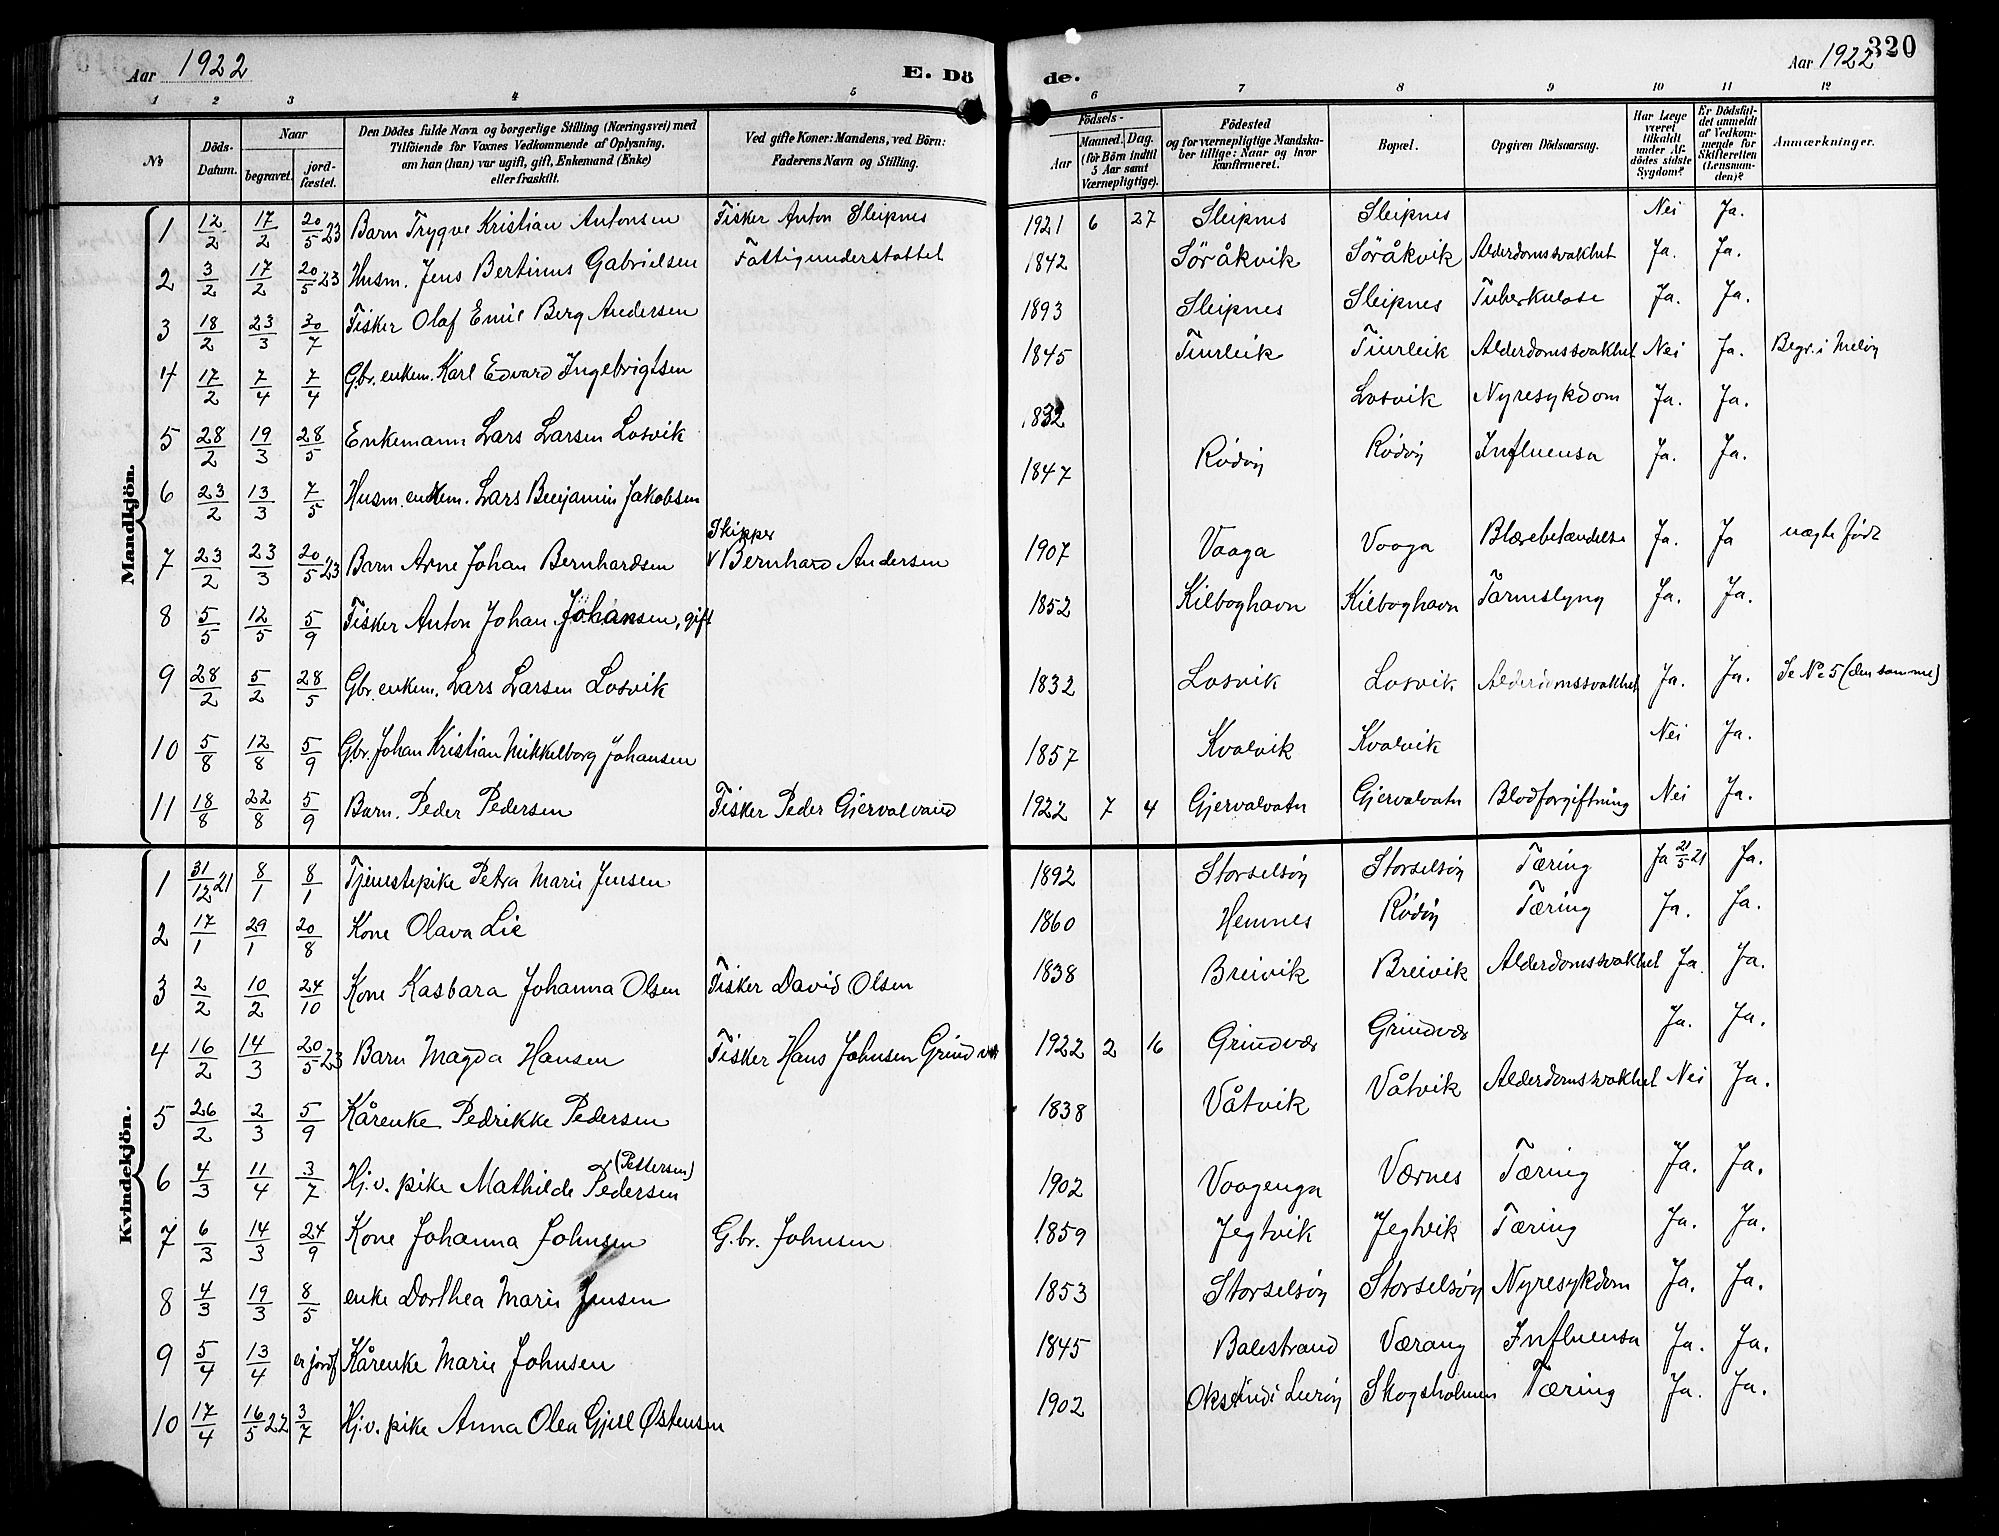 Aar 1922
E. Dö
de.
Aar 1922
320
1 2 3 4 5 6 7 8 9 10 11 12
No
Döds-Datum.
Naar
begravet.
jord-fæstet.
Den Dödes fulde Navn og borgerlige Stilling (Næringsvei) med
Tilföiende for Voxnes Vedkommende af Oplysning,
om han (hun) var ugift, gift, Enkemand (Enke)
eller fraskilt.
Ved gifte Koner: Mandens, ved Börn:
Faderens Navn og Stilling.
Födsels-
Aar
Maaned. Dag.
(for Börn indtil
5 Aar samt
Værnepligtige).
Födested
og for værnepligtige Mandska-
ber tillige: Naar og hvor
konfirmeret.
Bopæl.
Opgiven Dödsaarsag.
Har Læge
været
tilkaldt
under Af-
dödes sidste
Sygdom?
Er Dödsfal-
det anmeldt
af Vedkom-
mende for
Skifteretten
(Lensman-
den)?
Anmærkninger.
Mandkjön.
1 12/2 17/2 20/5 23 Barn Trygve Kristian Antonsen Fisker Anton Sleipnes 1921 6 27 Sleipnes Sleipnes Nei Ja.
2 3/2 17/2 20/5 23 Husm. Jens Bertinus Gabrielsen Fattigunderstøttet 1842 Söråkvik Söråkvik Alderdomssvakhet Ja. Ja.
3 18/2 23/3 30/7 Fisker Olaf Emil Berg Andersen 1893 Sleipnes Sleipnes Tuberkulose Ja. Ja.
4 17/2 7/4 7/4 Gbr. enkem. Karl Edvard Ingebrigtsen 1845 Alderdomssvakhet Nei Ja. Begr. i Meløy
5 28/2 19/3 28/5 Enkemann Lars Larsen Losvik 1832 Losvik Nyresykdom Ja. Ja.
6 23/2 13/3 7/5 Husm. enkem. Lars Benjamin Jakobsen 1847 Rødøy Rødøy Influensa Ja. Ja.
7 23/2 23/3 20/5 23 Barn Arne Johan Bernhardsen Skipper Bernhard Andersen 1907 Vaaga Vaaga Blærebetændelse Ja. Ja uegte født
8 5/5 12/5 5/9 Fisker Anton Johan Johansen, gift 1852 Kilboghavn Kilboghavn Tarmslyng Ja. Ja.
9 28/2 5/2 28/5 Gbr. enkem. Lars Larsen Losvik 1832 Losvik Losvik Alderdomssvakhet Ja. Ja. Se No 5 (den samme)
10 5/8 12/8 5/9 Gbr. Johan Kristian Mikkelborg Johansen 1857 Kvalvik Kvalvik Nei Ja.
11 18/8 22/8 5/9 Barn. Peder Pedersen Fisker Peder Gjervalvand 1922 7 4 Gjervalvatn Gjervalvatn Blodforgiftning Nei Ja.
Kvindekjön.
1 31/12 21 8/1 8/1 Tjenestepike Petra Marie Jensen 1892 Storselsøy Storselsøy Tæring Ja 21/5 21 Ja.
2 17/1 29/1 20/8 Kone Olava Lie 1860 Hemnes Rødøy Tæring Ja. Ja.
3 2/2 10/2 24/10 Kone Kasbara Johanna Olsen Fisker David Olsen 1838 Breivik Breivik Alderdomssvakhet Ja. Ja.
4 16/2 14/3 20/5 23 Barn Magda Hansen Fisker Hans Johnsen Grindvær 1922 2 16 Grindvær Grindvær Ja. Ja.
5 26/2 2/3 5/9 Kårenke Pedrikke Pedersen 1838 Våtvik Våtvik Alderdomssvakhet Nei Ja.
6 4/3 11/4 3/7 Hj.v. pike Mathilde Pedersen (Pettersen) 1902 Vaagenga Værnes Tæring Ja. Ja.
7 6/3 14/3 24/9 Kone Johanna Johnsen G.br. Johnsen 1859 Jegtvik Jegtvik Tæring Ja. Ja.
8 4/3 19/3 8/5 enke Dorthea Marie Jensen 1853 Storselsøy Storselsøy Nyresykdom Ja. Ja.
9 5/4 13/4 er jordf Kårenke Marie Johnsen 1845 Balestrand Værang Influensa Ja. Ja.
10 17/4 16/5 22 3/7 Hj.v. pike Anna Olea Gjesl Østensen 1902 Lurøy Skogsholmen Tæring Ja. Ja.